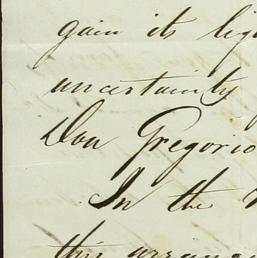 gain its
uncertainty
Don Gregorio
In the
this